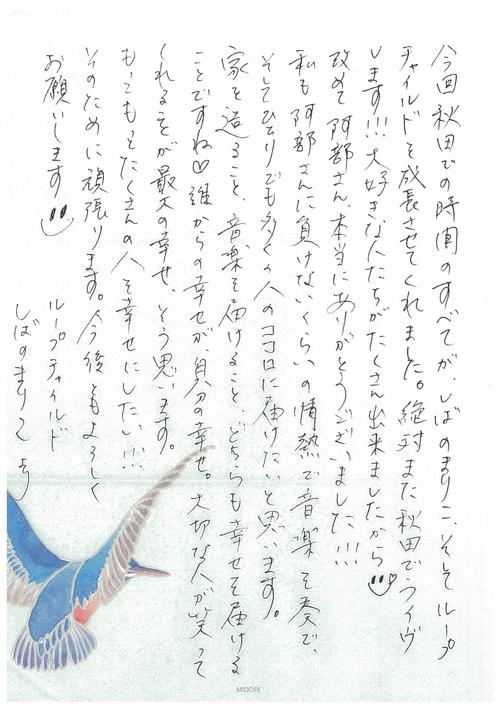 今回秋田での時間のすべてが、しばのまりこ、そしてループ
チャイルドを成長させてくれました。絶対また秋田でライヴ
します!!!大好きな人たちがたくさん出来ましたから
改めて阿部さん、本当にありがとうございました!!!
私も阿部さんに負けないくらいの情熱で音楽を奏で、
そしてひとりでも多くの人のココロに届けたいと思います。
家を造ること、音楽を届けること、どちらも幸せを届ける
ことですね♡誰からの幸せが、自分の幸せ。大切な人が笑って
くれることが最大の幸せ、そう思います。
もっともっとたくさんの人を幸せにしたい!!!
そのために頑張ります。今後ともよろしく
お願いします
ループチャイルド
しばのまりこ
MIDORI